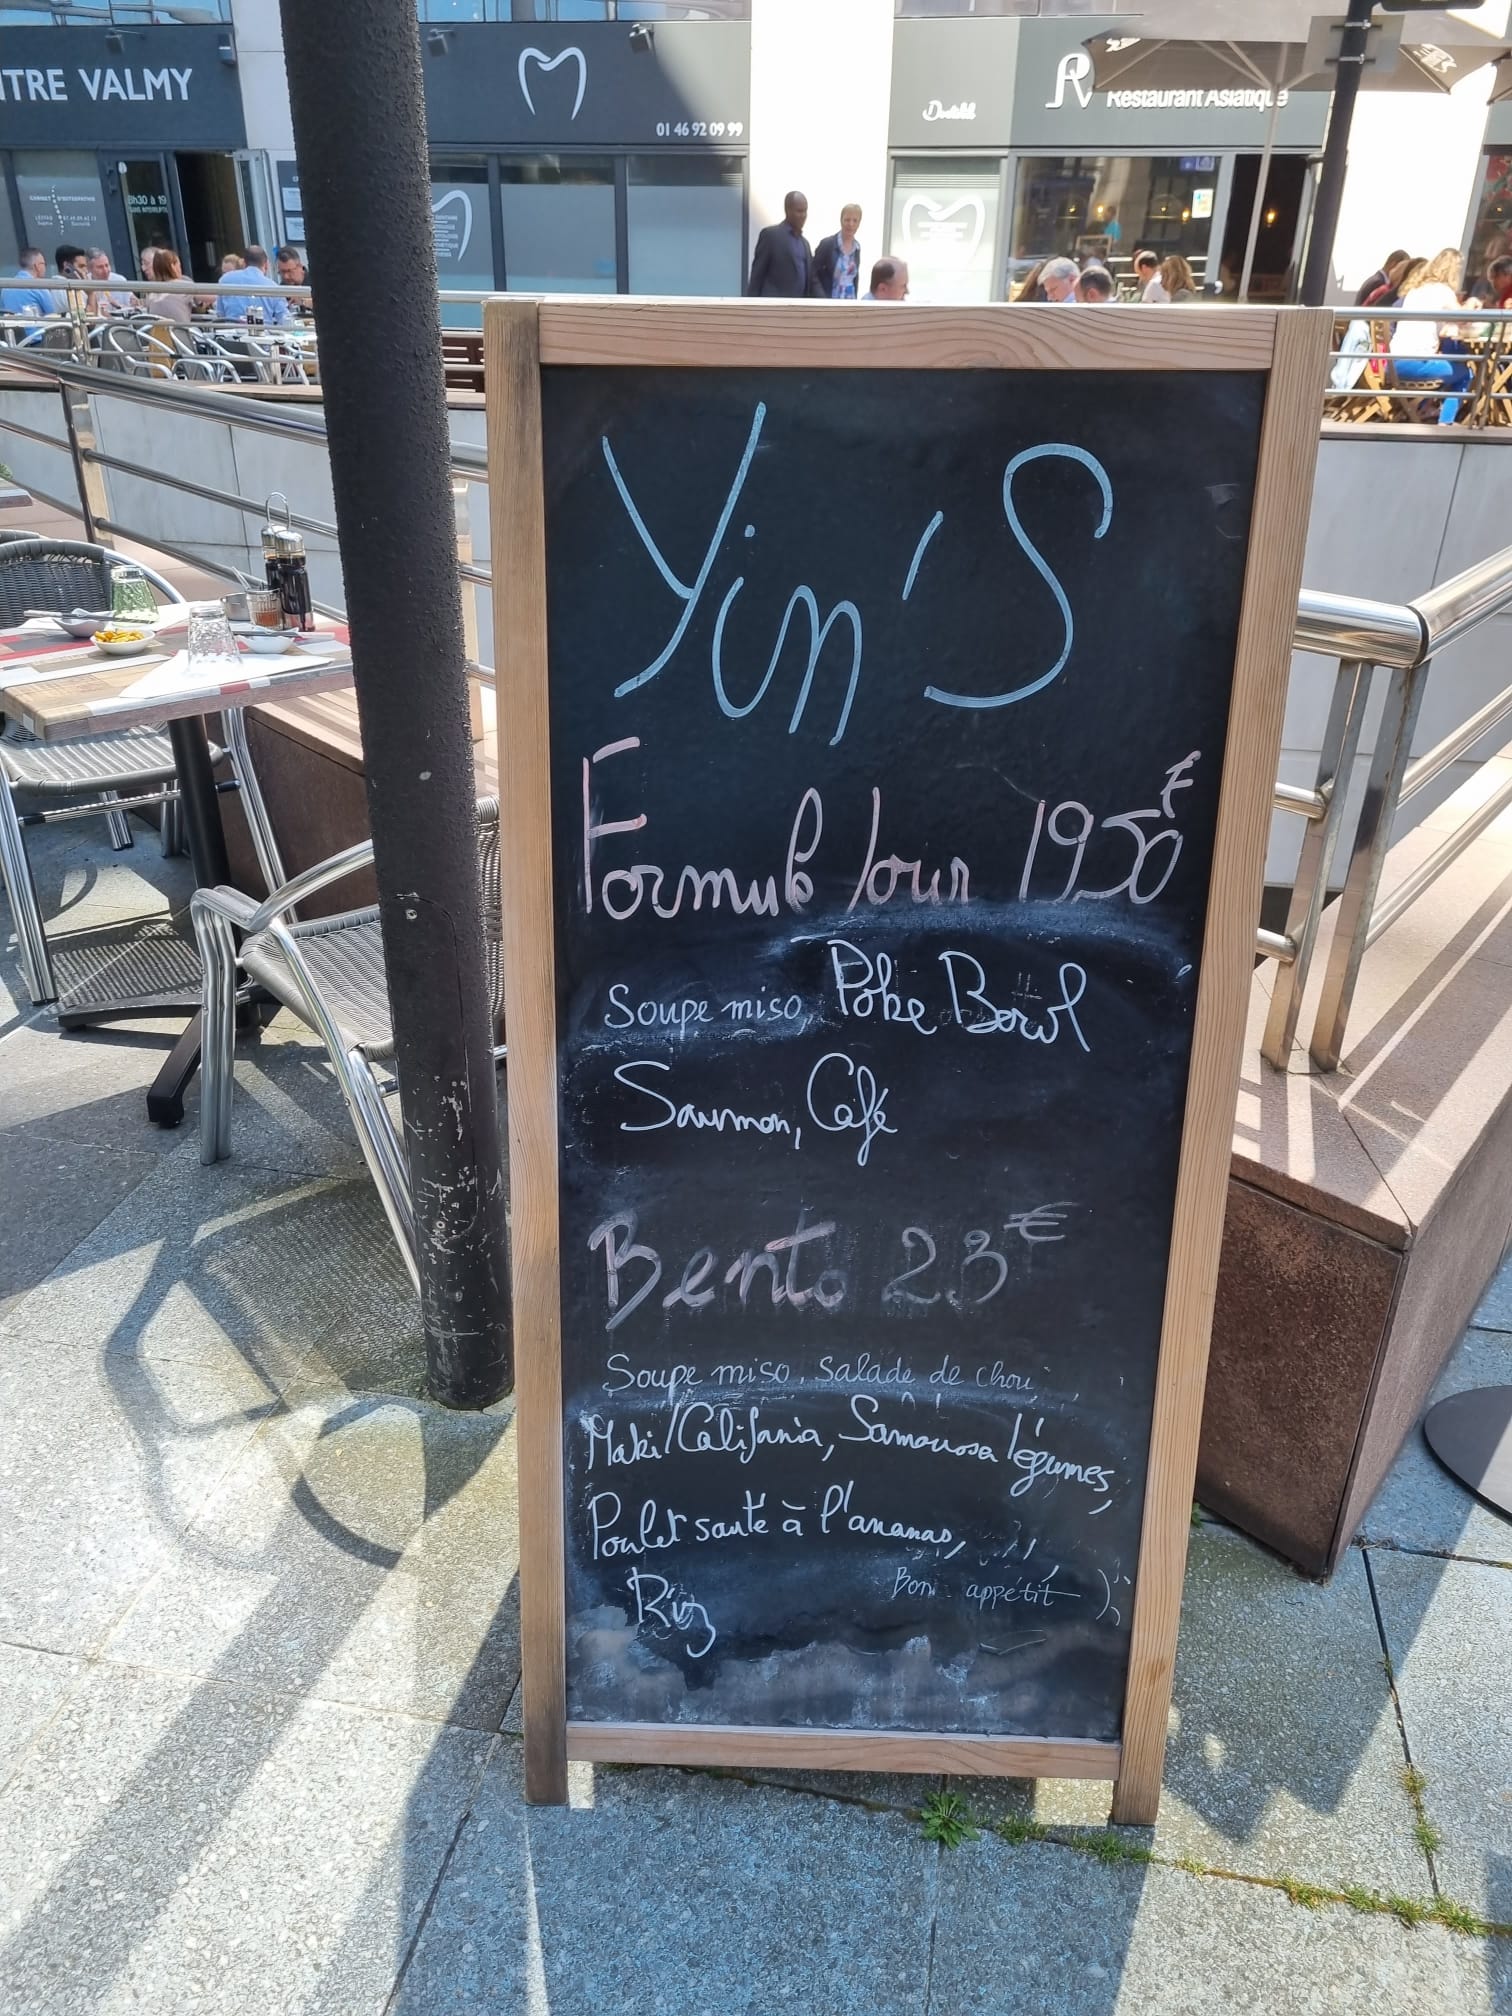 NTRE VALMY
01 46 92 09 99
Restaurant Asiatique
8h30 à 19
Yin'S
Formule Jour 19,50€
Soupe miso, Poke Bowl
Saumon, Café
Bento 23€
Soupe miso, Salade de chou,
Maki/California, Samoussa légumes,
Poulet sauté à l'ananas,
Riz
Bon appétit